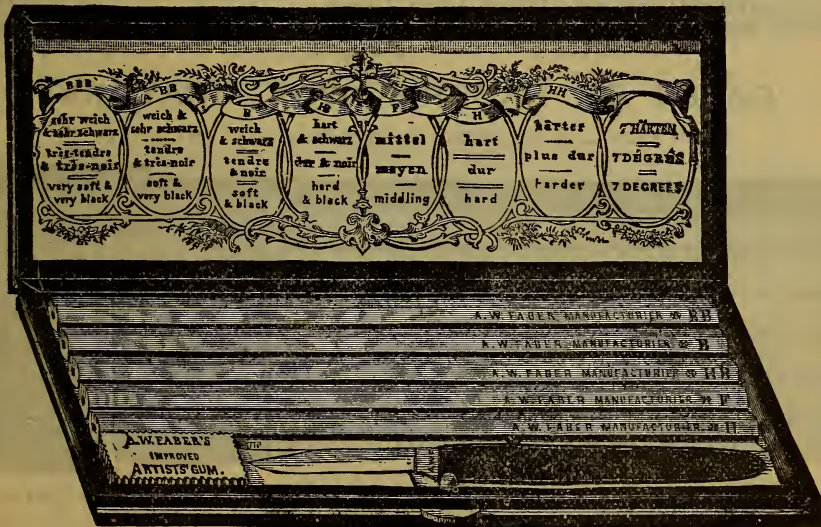 BBB
sehr weich
& sehr schwarz
très-tendre
& très-noir
very soft &
very black
BB
weich &
sehr schwarz
tendre
& très-noir
soft &
very black
B
weich
& schwarz
tendre
& noir
soft
& black
HB
hart
& schwarz
dur & noir
hard
& black
F
mittel
moyen
middling
H
hart
dur
hard
HH
härter
plus dur
harder
7 HÄRTEN
7 DÉGRÉS
7 DEGREES
A.W. FABER MANUFACTURIER BB
A.W. FABER MANUFACTURIER B
A.W. FABER MANUFACTURIER HB
A.W. FABER MANUFACTURIER F
A.W. FABER MANUFACTURIER H
A.W. FABER'S
IMPROVED
ARTISTS' GUM.